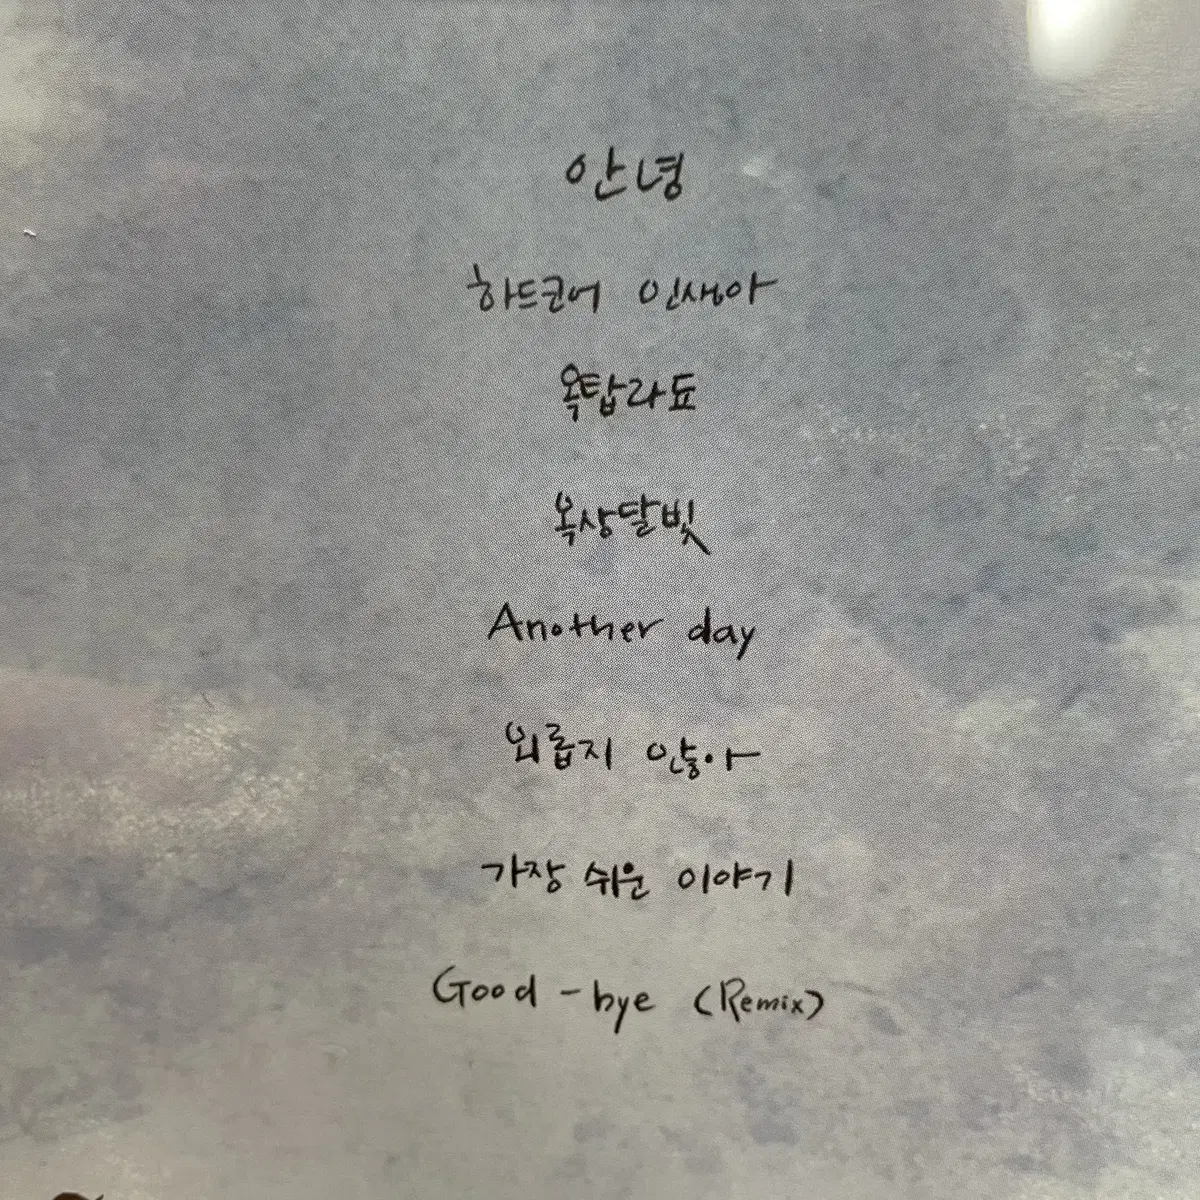 안녕
하드코어 인생아
옥탑라됴
옥상달빛
Another day
외롭지 않아
가장 쉬운 이야기
Good-bye (Remix)